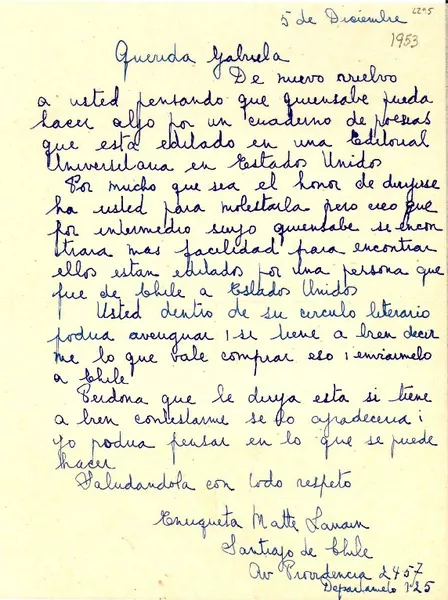 2295
5 de Diciembre
1953
Querida Gabriela
De nuevo vuelvo
a usted pensando que quiensabe pueda
hacer algo por un cuaderno de poesias
que está editado en una Editorial
Universitaria en Estados Unidos
Por mucho que sea el honor de dirijirse
ha usted para molestarla pero creo que
por intermedio suyo quiensabe se encon
trara mas facilidad para encontrar
ellos estan editados por una persona que
fue de Chile a Estados Unidos
Usted dentro de su circulo literario
podria averiguar i si tiene a bien decir
me lo que vale comprar eso i enviarmelo
a Chile
Perdona que le dirija esta si tiene
a bien contestarme se lo agradeceria i
yo podria pensar en lo que se puede
hacer
Saludandola con todo respeto
Enriqueta Matte
Santiago de Chile
Av Providencia 2457
Departamento 125